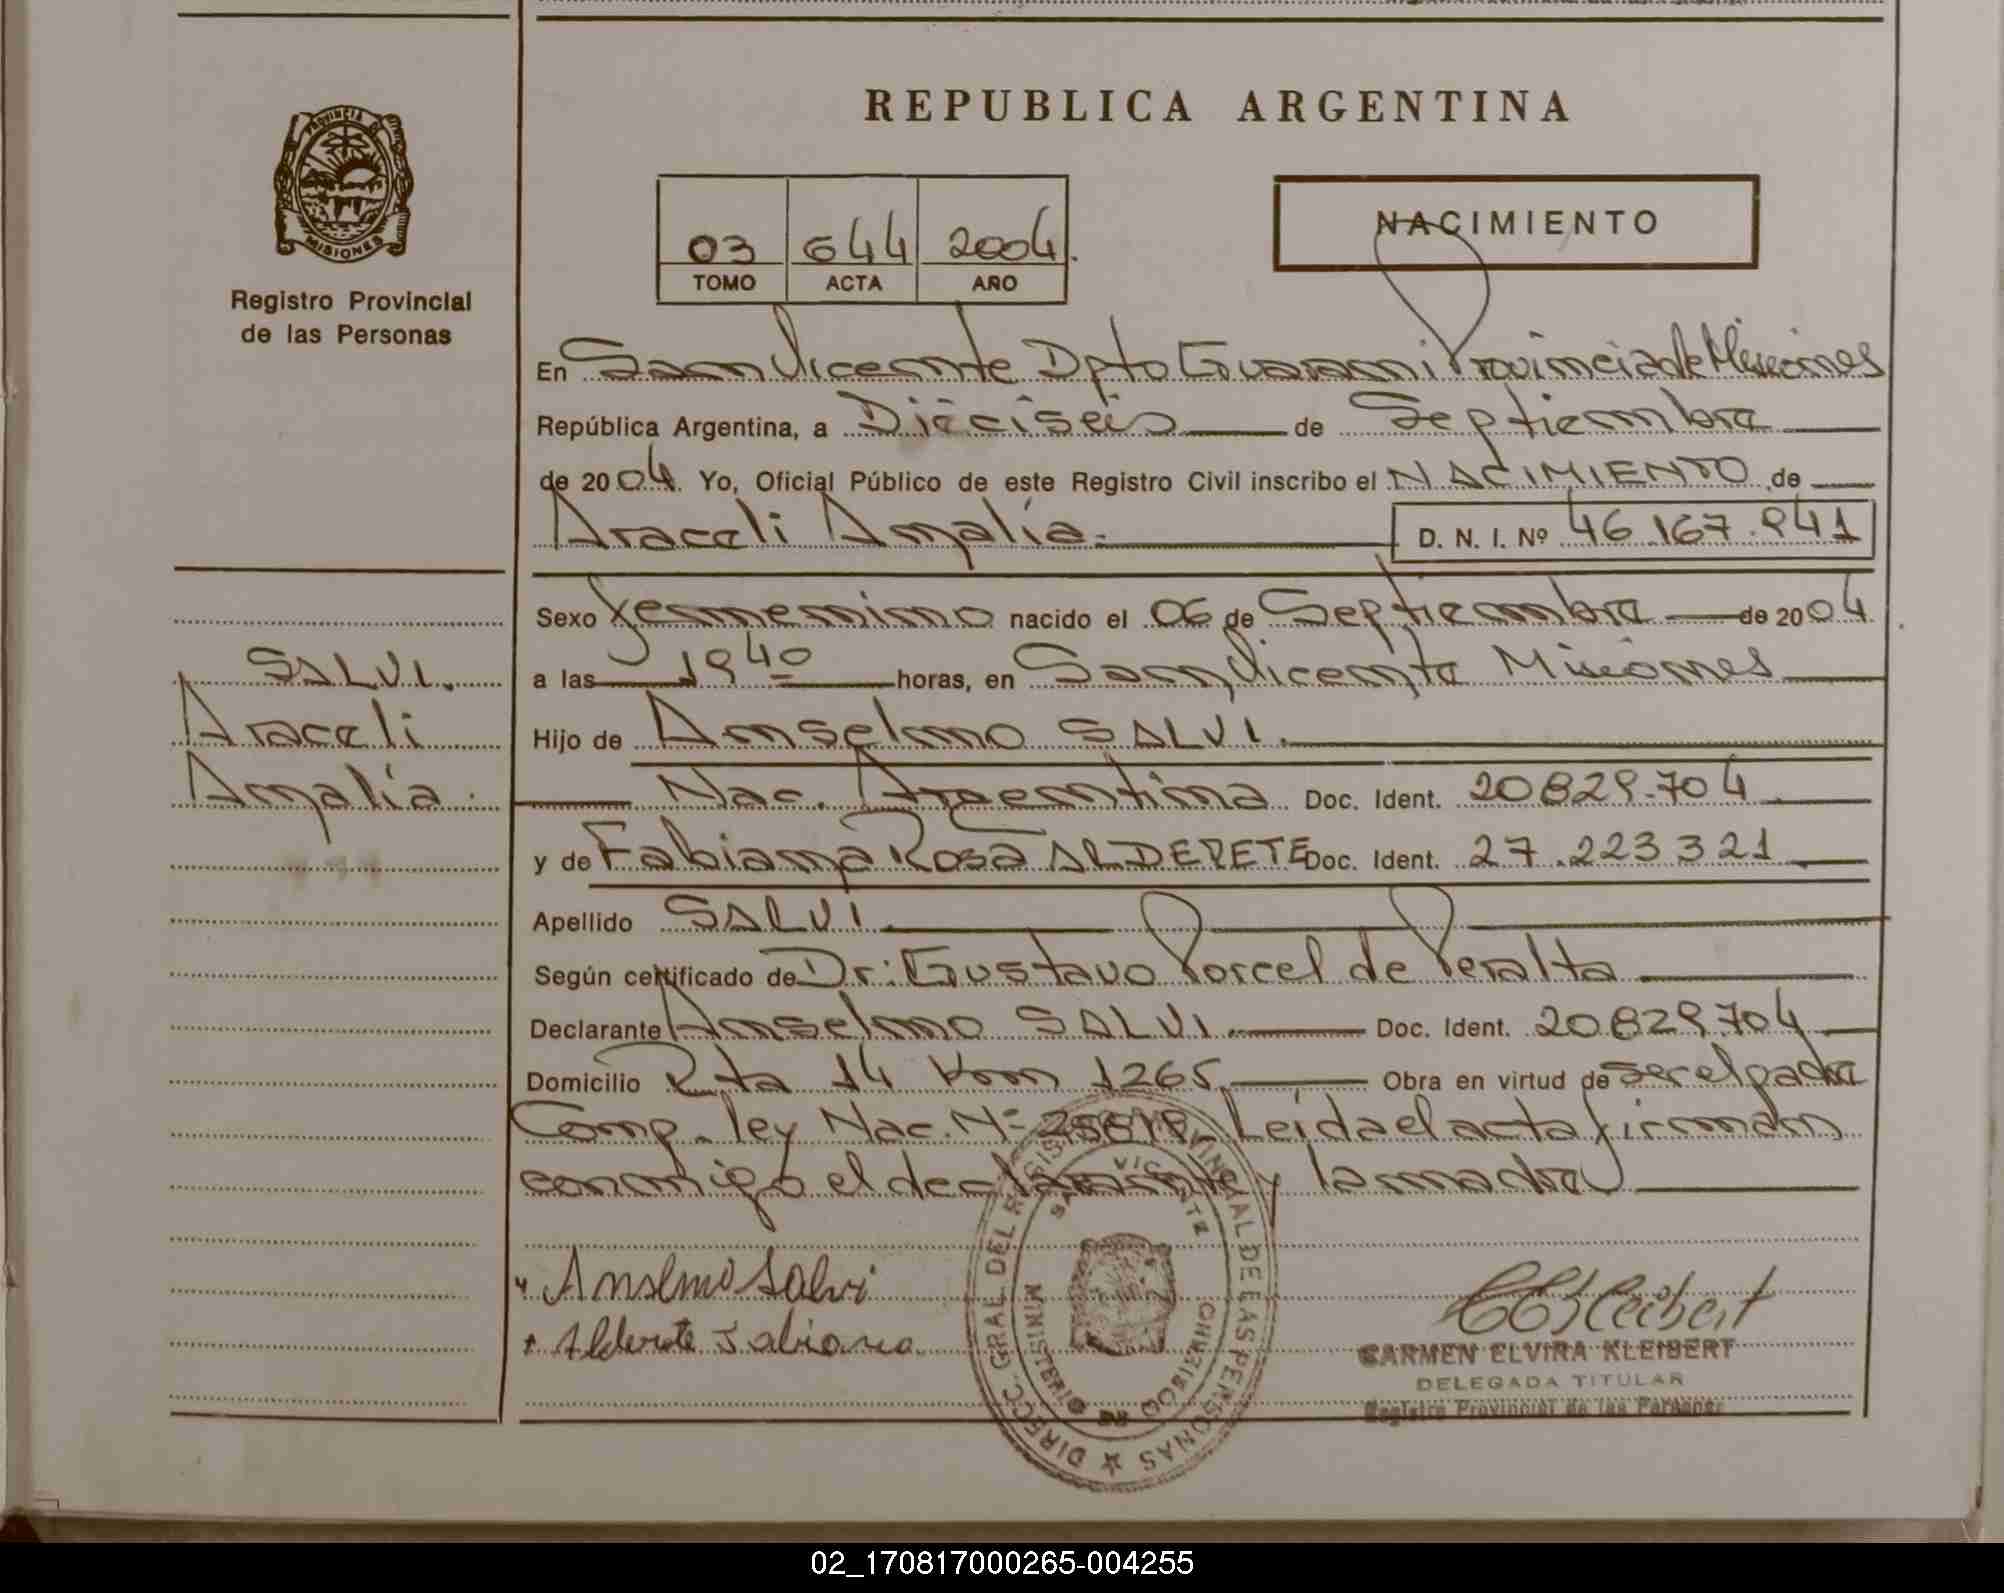 REPUBLICA ARGENTINA
PROVINCIA DE
MISIONES
Registro Provincial
de las Personas
03 644 2004.
TOMO ACTA AÑO
NACIMIENTO
En San Vicente Dpto Guarani Provincia de Misiones
República Argentina, a Dieciseis de Septiembre
de 2004. Yo, Oficial Público de este Registro Civil inscribo el NACIMIENTO de
Araceli Amalia.
D. N. I. Nº 46.167.841
Sexo femenino nacido el 06 de Septiembre de 2004
a las 19 40 horas, en San Vicente Misiones
Hijo de Anselmo SALVI.
Nac. Argentina Doc. Ident. 20829.704
y de Fabiana Rosa ALDERETE Doc. Ident. 27.223321
Apellido SALVI
Según certificado de Dr: Gustavo Porcel de Peralta
Declarante Anselmo SALVI. Doc. Ident. 20829704
Domicilio Rta 14 Km 1265. Obra en virtud de ser el padre
Comp. ley Nac. Nº Leida el acta firman
conmigo el declarante y la madre
SALVI.
Araceli
Amalia.
Anselmo Salvi
Alderete Fabiana
DIRECC. GRAL DEL REGISTRO PROVINCIAL DE LAS PERSONAS
SAN VICENTE
MINISTERIO DE GOBIERNO
CEKleibert
CARMEN ELVIRA KLEIBERT
DELEGADA TITULAR
Registro Provincial de las Personas
02_170817000265-004255